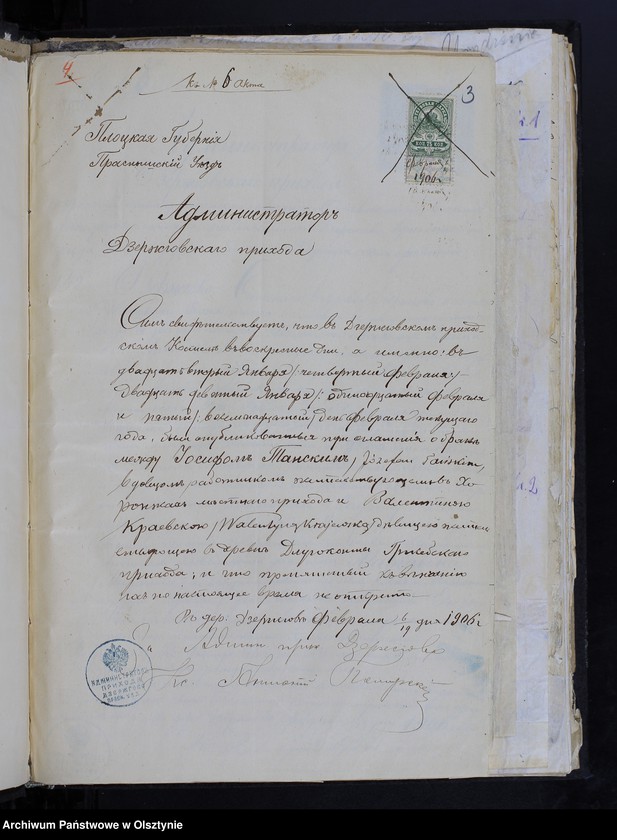 4
Къ № 6 акта
3
Плоцкая Губернія
Праснышскій Уѣздъ
КОП 75 КОП
февраля
1906
Администраторъ
Дзержговскаго прихода
Симъ свидѣтельствуетъ, что въ Дзержговскомъ приход-
скомъ Костелѣ въ воскресные дни, а именно: въ
двадцать вторый Января /: четвертый февраля :/
двадцать девятый Января /: одиннадцатый февраля
и пятый /: восемнадцатый / дня февраля текущаго
года, были опубликованныя при оглашенія о бракѣ
между Іосифомъ Танскимъ / Józefem Tańskim /
вдовцомъ работникомъ жительствующемъ въ Хо-
ронжахъ мѣстнаго прихода и Валентіною
Краевскою / Walentyną Krajewską / дѣвицею
въ деревнѣ Длугоконты Гржебскаго
прихода; и что препятствій къ вѣнчанію
ихъ по настоящее время не открыто
Въ дер: Дзержговъ февраля 6/19 дня 1906 г
За Админ прих Дзержгово
Кс.
АДМИНИСТРАТОРЪ
ПРИХОДА
ДЗЕРЖГОВО
Archiwum Państwowe w Olsztynie